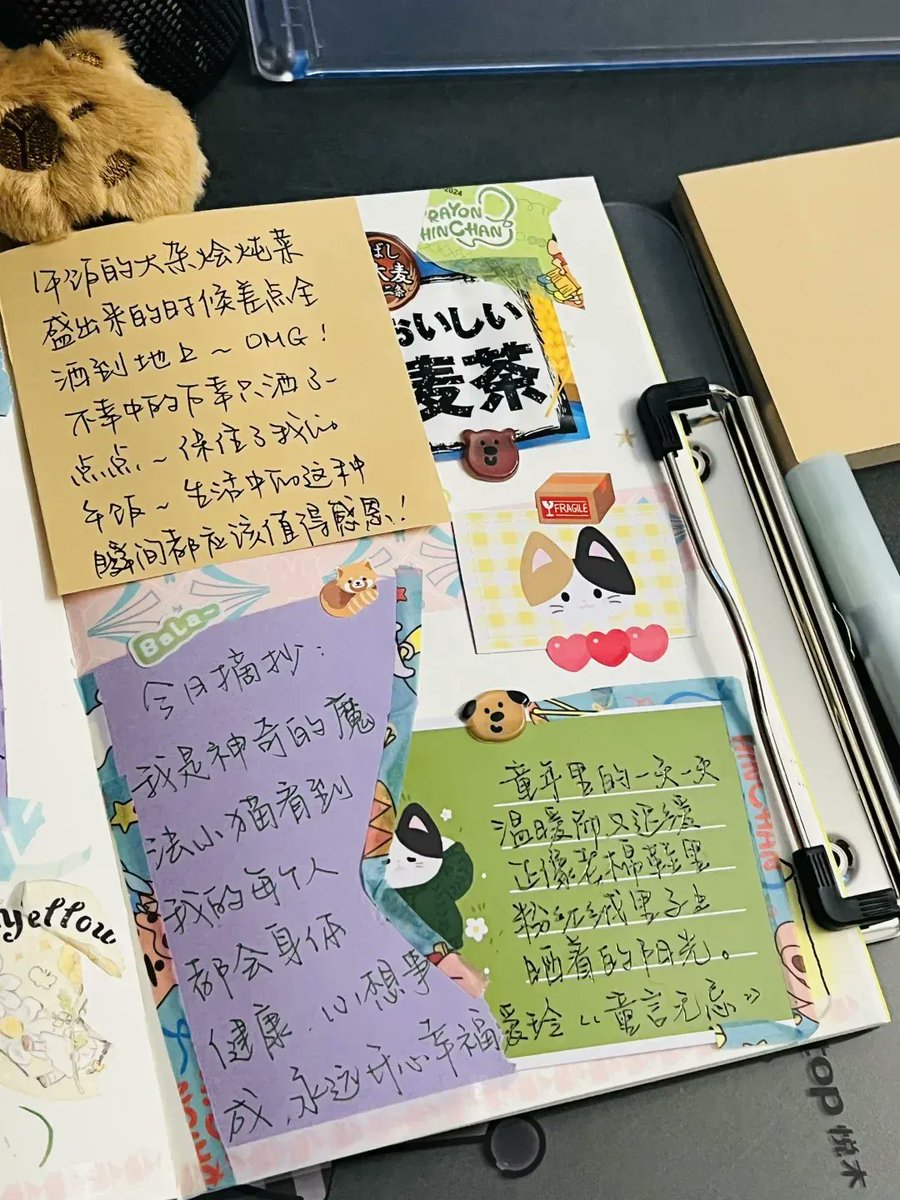 午饭的大杂烩炖菜
盛出来的时候差点全
洒到地上~OMG!
不幸中的万幸只洒了一
点点~保住了我的
午饭~生活中的这种
瞬间都应该值得感恩!
2024
RAYON
HINCHAN
麦
おいしい
麦茶
FRAGILE
BaLa~
今日摘抄:
我是神奇的魔
法小猫看到
我的每个人
都会身体
健康、心想事
成、永远开心幸福
童年里的一天一天
温暖而又迟缓
正像老棉鞋里
粉红绒里子上
晒着的阳光。
爱玲《童言无忌》
INCHAN
Yellow
top 悦木